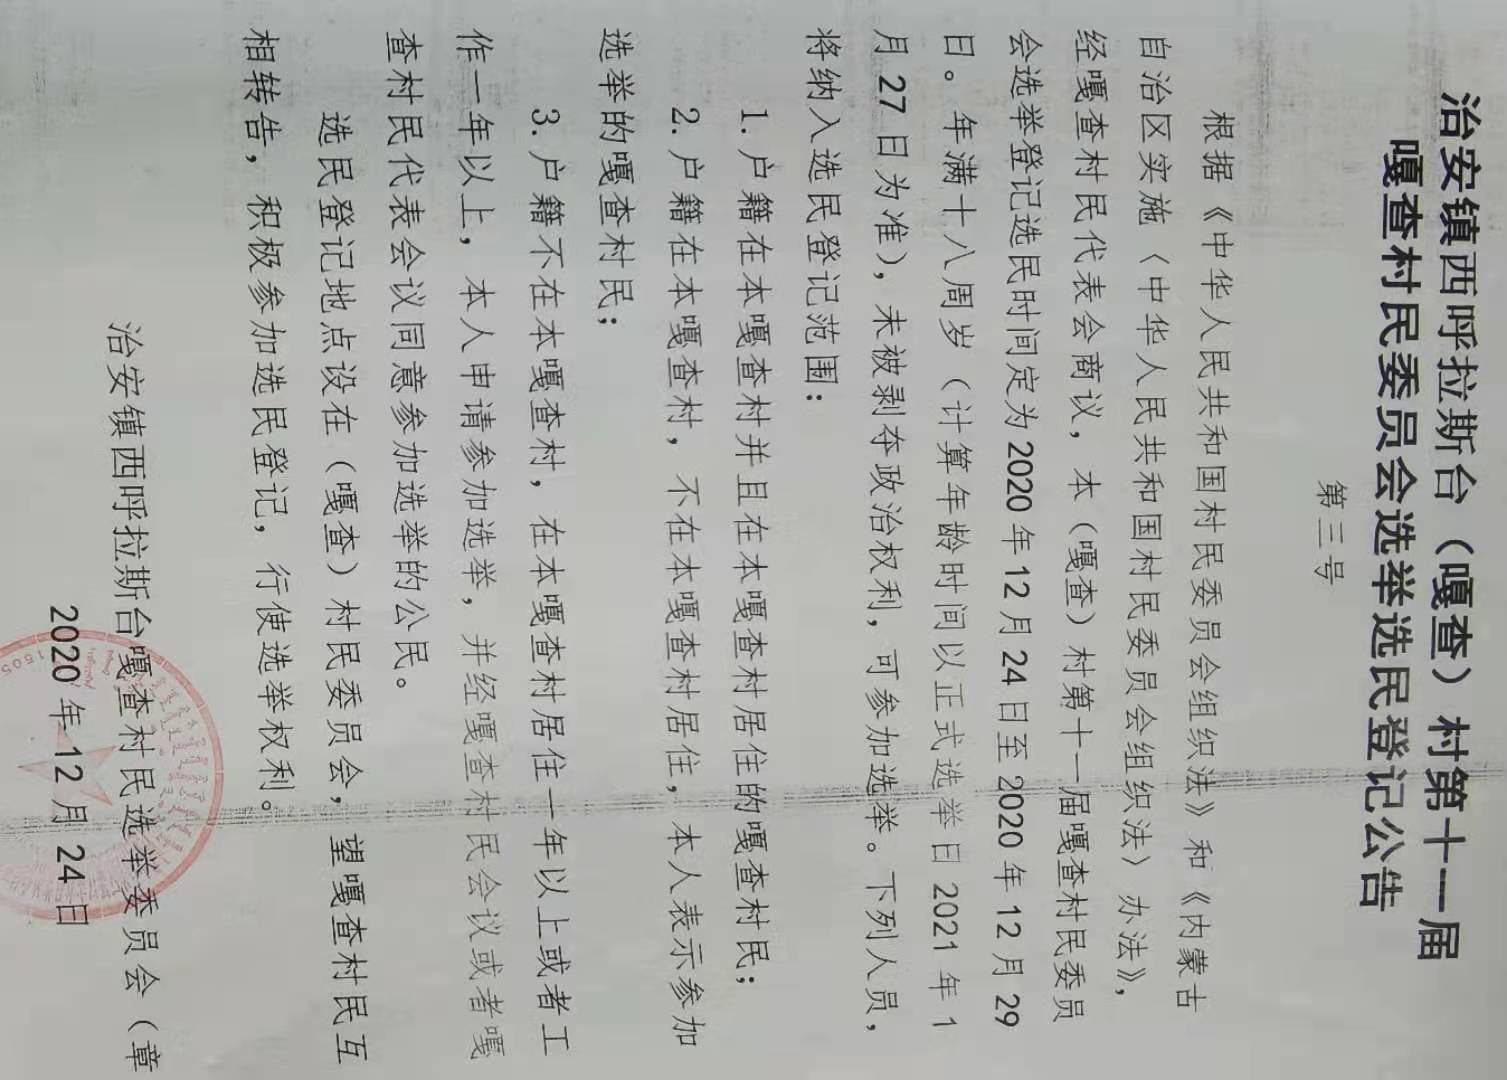 治安镇西呼拉斯台（嘎查）村第十一届
嘎查村民委员会选举选民登记公告
第三号
根据《中华人民共和国村民委员会组织法》和《内蒙古
自治区实施〈中华人民共和国村民委员会组织法〉办法》，
经嘎查村民代表会商议，本（嘎查）村第十一届嘎查村民委员
会选举登记选民时间定为2020年12月24日至2020年12月29
日。年满十八周岁（计算年龄时间以正式选举日2021年1
月27日为准），未被剥夺政治权利，可参加选举。下列人员，
将纳入选民登记范围：
1.户籍在本嘎查村并且在本嘎查村居住的嘎查村民；
2.户籍在本嘎查村，不在本嘎查村居住，本人表示参加
选举的嘎查村民；
3.户籍不在本嘎查村，在本嘎查村居住一年以上或者工
作一年以上，本人申请参加选举，并经嘎查村民会议或者嘎
查村民代表会议同意参加选举的公民。
选民登记地点设在（嘎查）村民委员会，望嘎查村民互
相转告，积极参加选民登记，行使选举权利。
治安镇西呼拉斯台嘎查村民选举委员会（章
2020年12月24日
1505